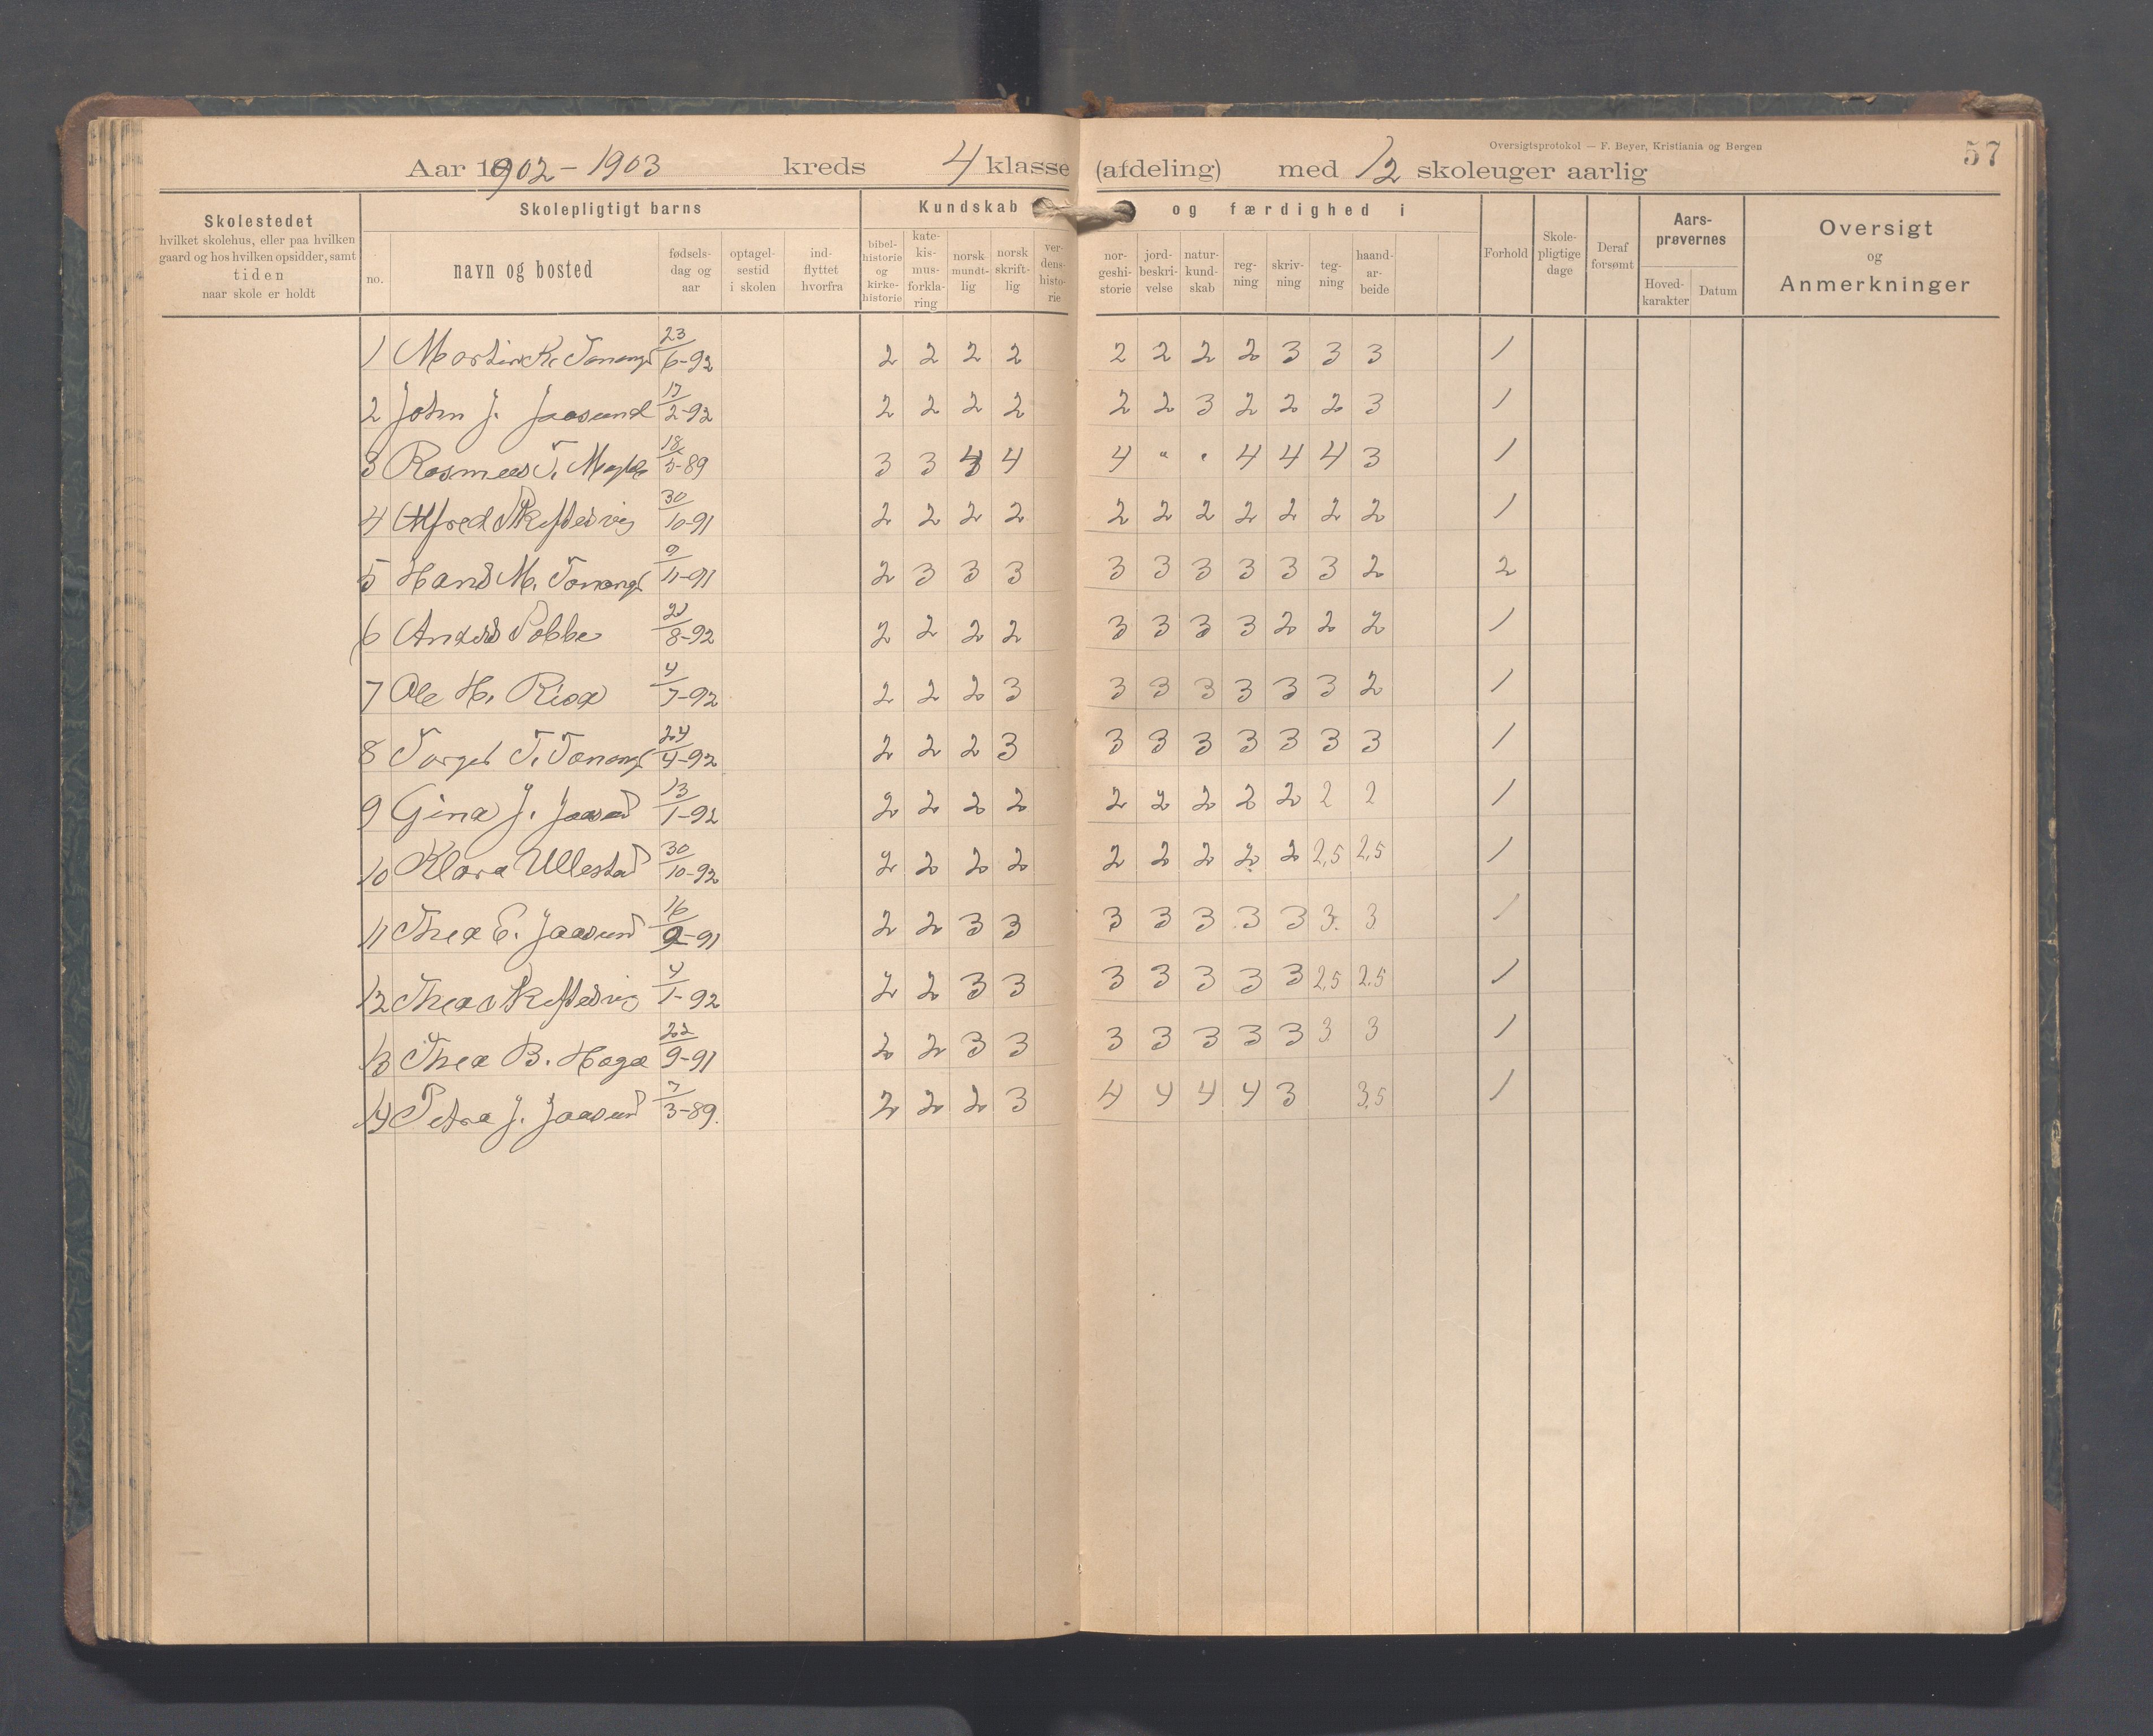 Oversigtsprotokol — F. Beyer, Kristiania og Bergen
57
Aar 1902 - 1903 kreds 4 klasse (afdeling) med 12 skoleuger aarlig
Skolestedet hvilket skolehus, eller paa hvilken gaard og hos hvilken opsidder, samt tiden naar skole er holdt
Skolepligtigt barns
no. navn og bosted fødsels-dag og aar optagel-sestid i skolen ind-flyttet hvorfra
Kundskab og færdighed i
bibel-historie og kirke-historie kate-kis-mus-forkla-ring norsk mundt-lig norsk skrift-lig ver-dens-histo-rie nor-geshi-storie jord-beskri-velse natur-kund-skab reg-ning skriv-ning teg-ning haand-ar-beide
Forhold Skole-pligtige dage Deraf forsømt
Aars-prøvernes Hoved-karakter Datum
Oversigt og Anmerkninger
1 Martin K. Tananger 23/6-92 2 2 2 2 2 2 2 2 3 3 3 1
2 John J. Jaasund 17/2-92 2 2 2 2 2 2 3 2 2 2 3 1
3 Rasmus T. 18/5-89 3 3 4 4 4 " " 4 4 4 3 1
4 Alfred Skiftesvig 30/10-91 2 2 2 2 2 2 2 2 2 2 2 1
5 Hans M. Tananger 9/11-91 2 3 3 3 3 3 3 3 3 3 2 2
6 Anders Pobbe 21/8-92 2 2 2 2 3 3 3 3 2 2 2 1
7 Ole H. Risa 4/7-92 2 2 2 3 3 3 3 3 3 3 2 1
8 Torger T. Tananger 24/4-92 2 2 2 3 3 3 3 3 3 3 3 1
9 Gina J. Jaasund 13/1-92 2 2 2 2 2 2 2 2 2 2 2 1
10 Klara Ullestad 30/10-92 2 2 2 2 2 2 2 2 2 2,5 2,5 1
11 Thea E. Jaasund 16/9-91 2 2 3 3 3 3 3 3 3 3 3 1
12 Thea Skiftesvig 4/1-92 2 2 3 3 3 3 3 3 3 2,5 2,5 1
13 Thea B. Haga 22/9-91 2 2 3 3 3 3 3 3 3 3 3 1
14 Petra J. Jaasund 7/3-89. 2 2 2 3 4 4 4 4 3 3,5 1